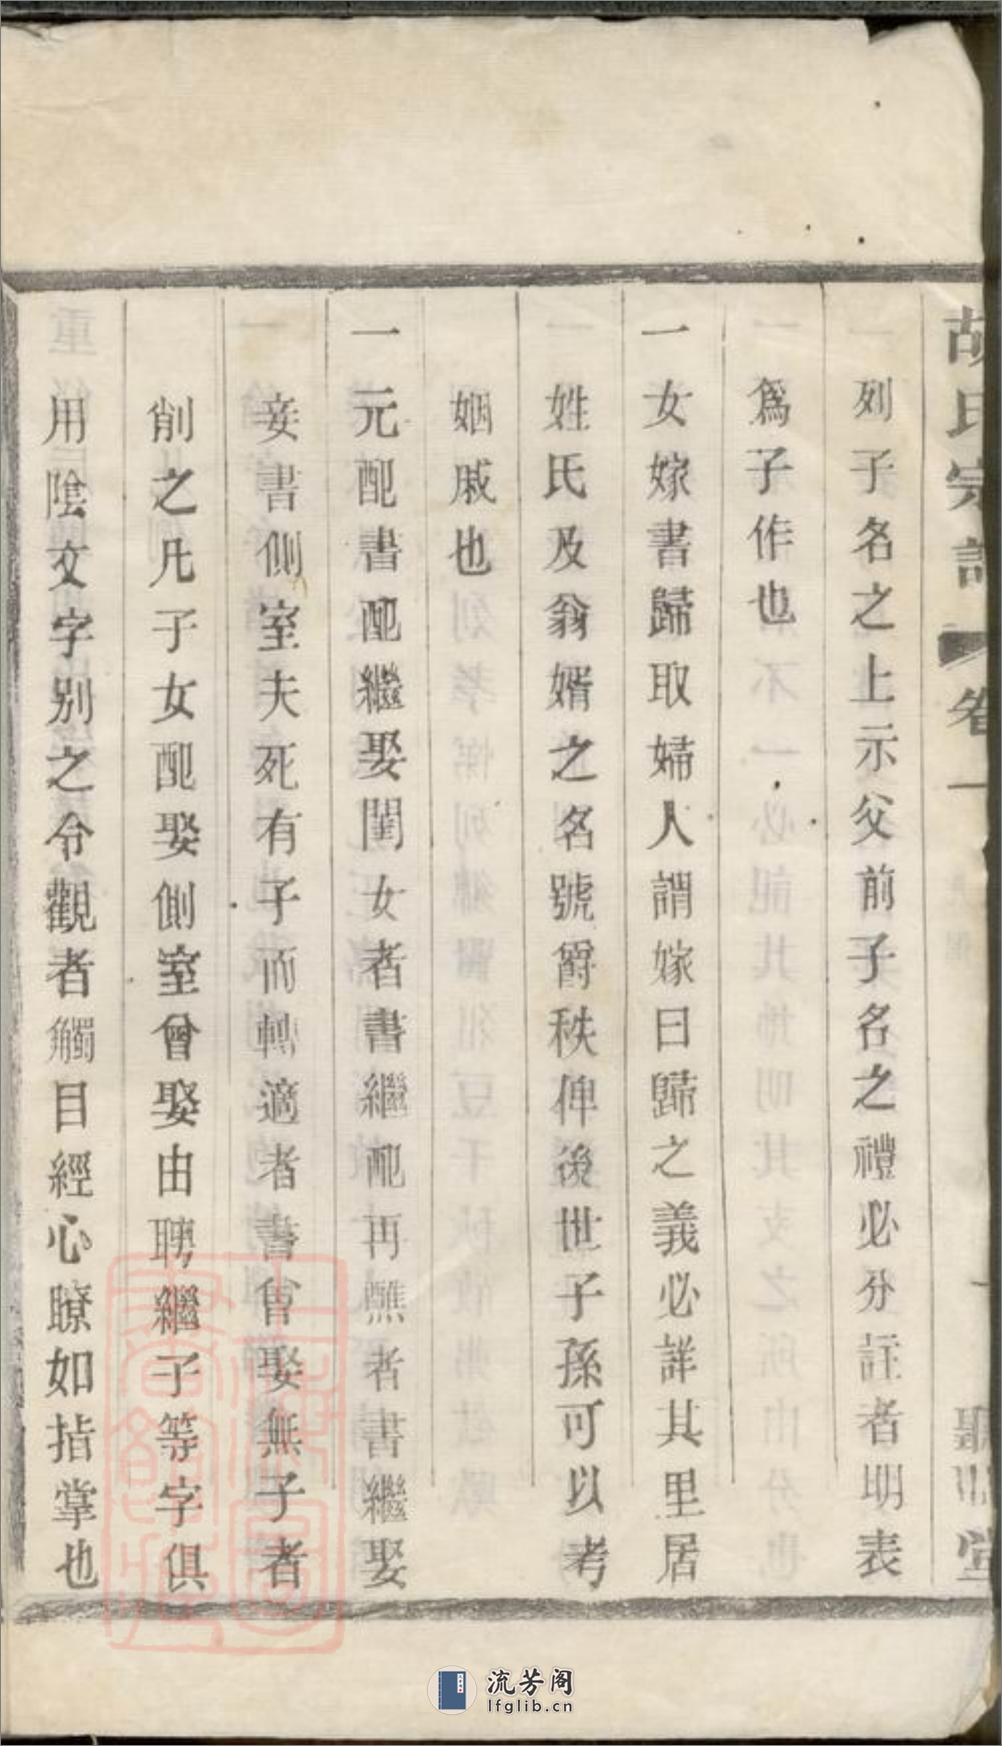 胡氏宗譜 卷一 一 聽 堂
列子名之上示父前子名之禮必分註者明表
爲子作也
一女嫁書歸取婦人謂嫁曰歸之義必詳其里居
姓氏及翁婿之名號爵秩俾後世子孫可以考
姻戚也
一元配書配繼娶閨女者書繼配再醮者書繼娶
妾書側室夫死有子而轉適者書曾娶無子者
削之凡子女配娶側室曾娶由聘繼子等字俱
用陰文字别之令觀者觸目經心瞭如指掌也
流芳阁
lfglib.cn